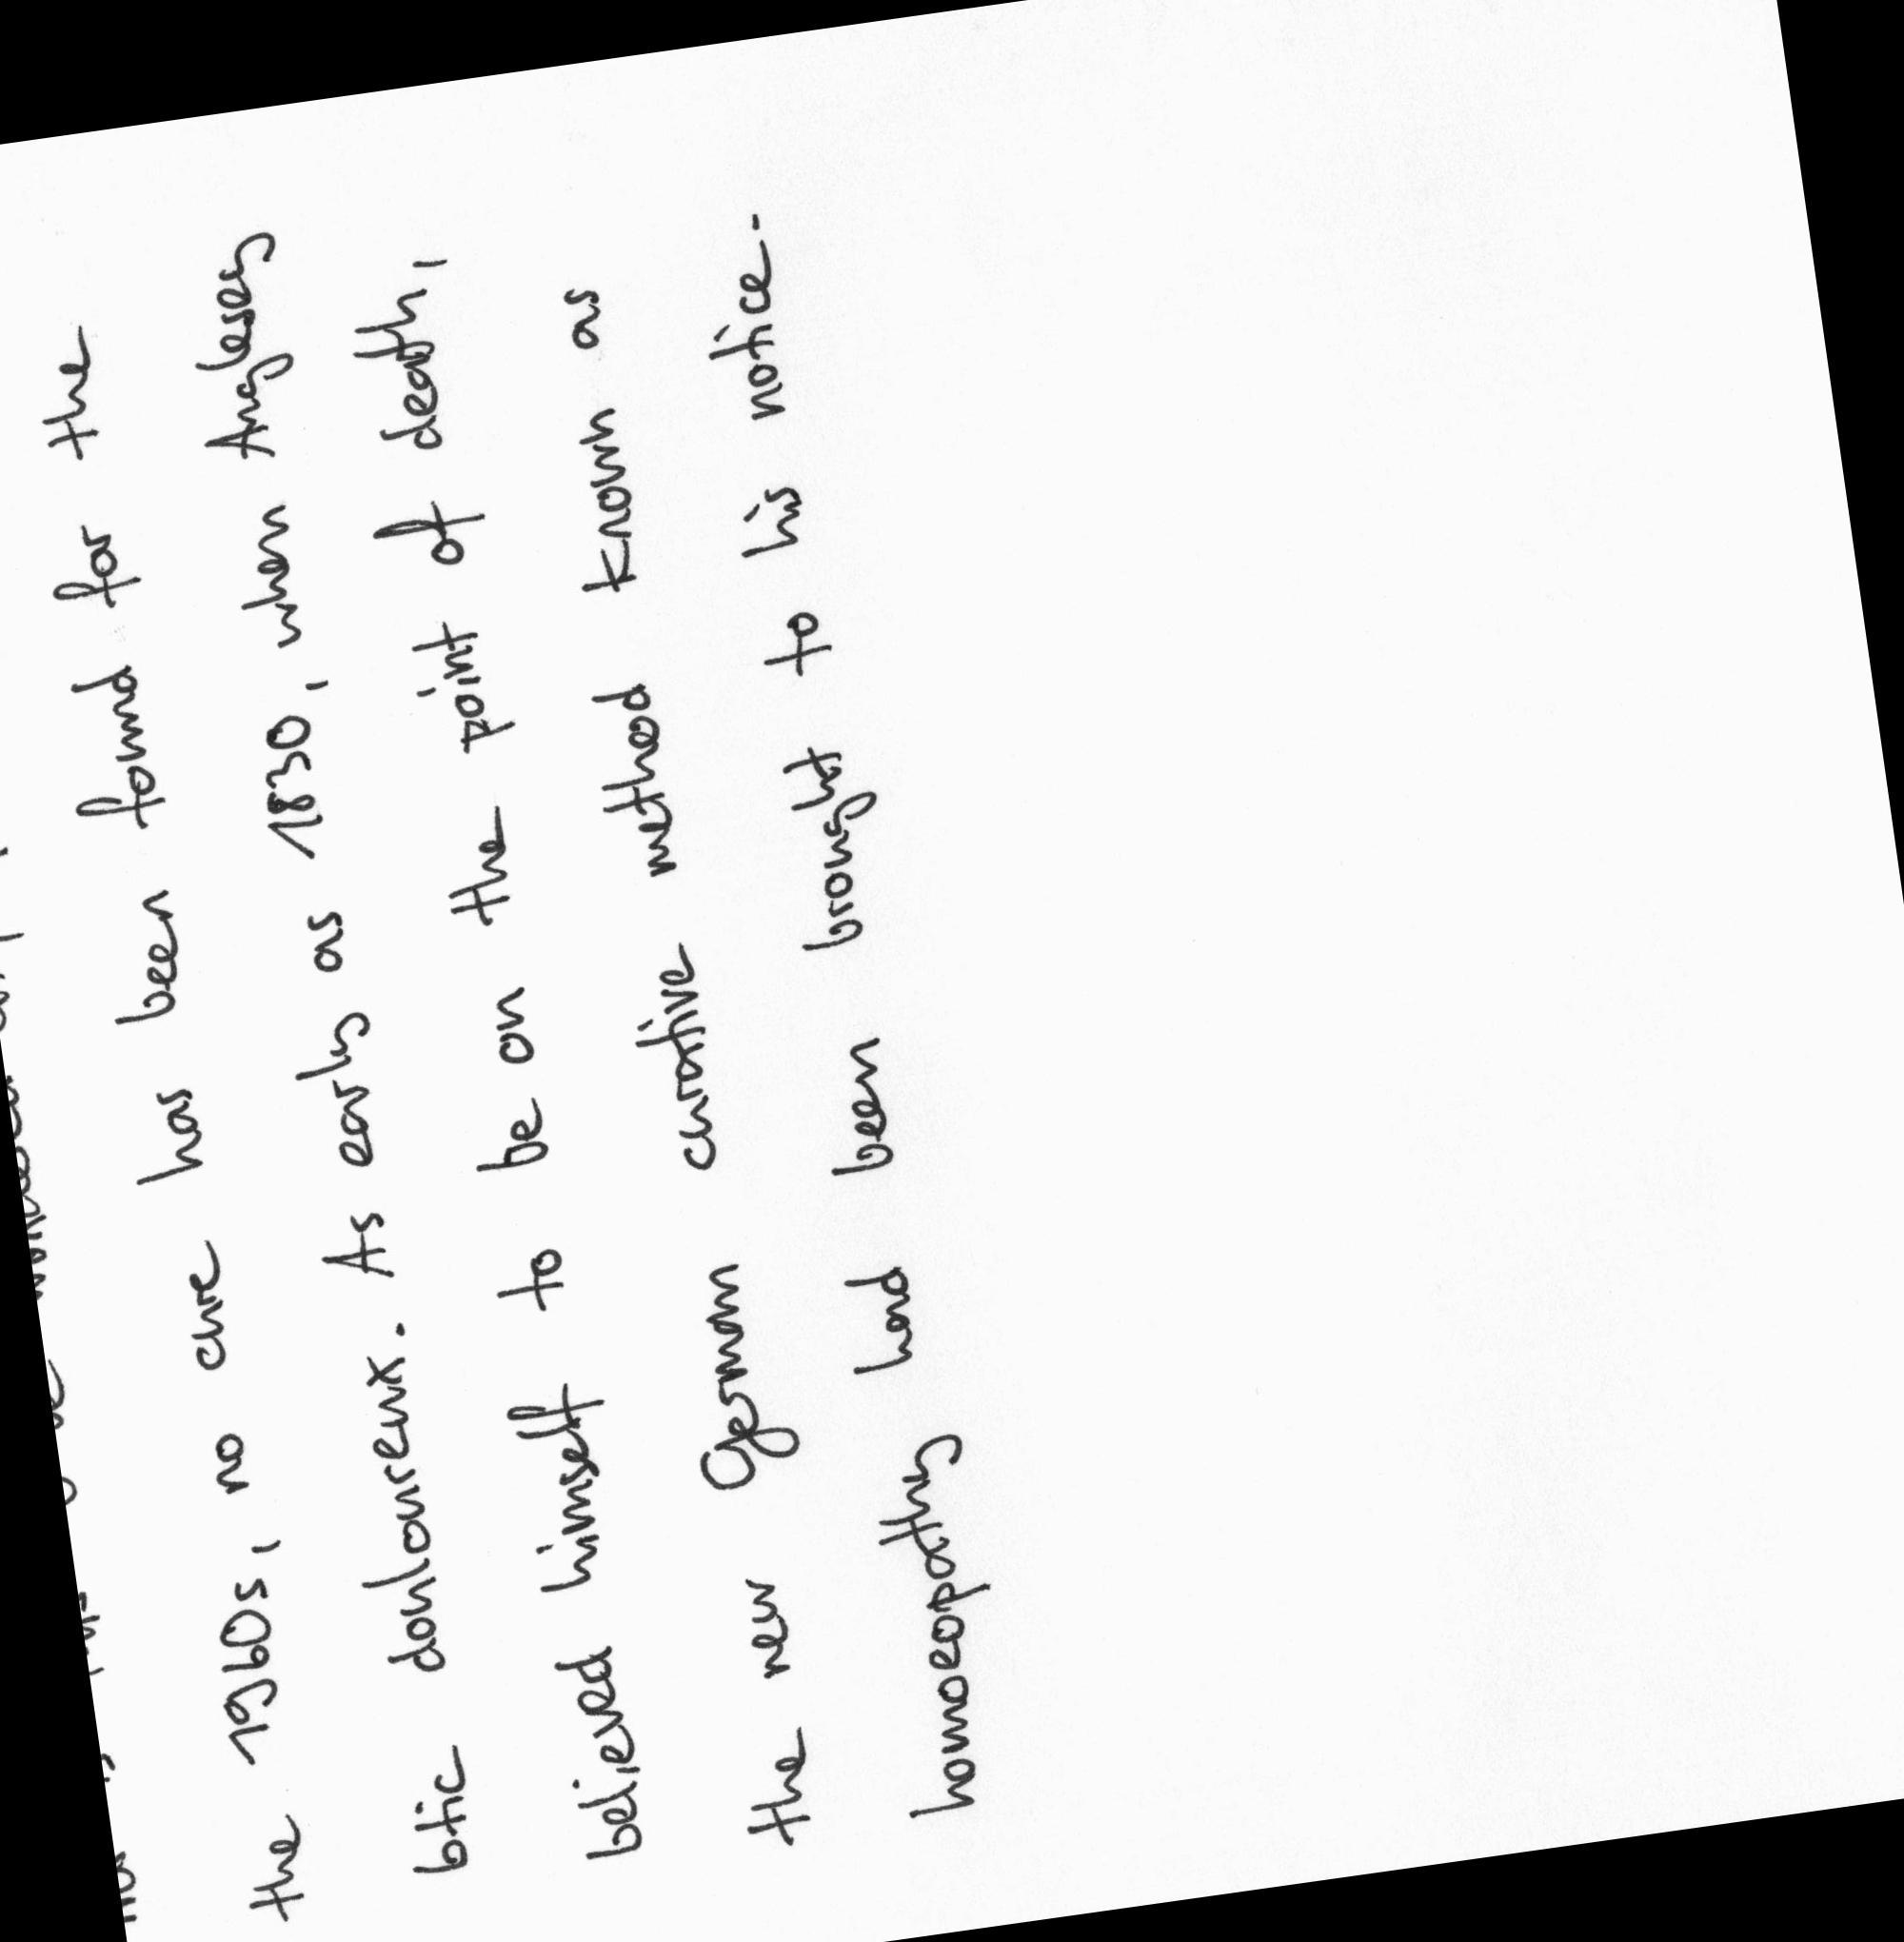 the 1960s, no cure has been found for the
btic douloureux. As early as 1830, when Anglesey
believed himself to be on the point of death,
the new German curative method known as
homoeopathy had been brought to his notice.